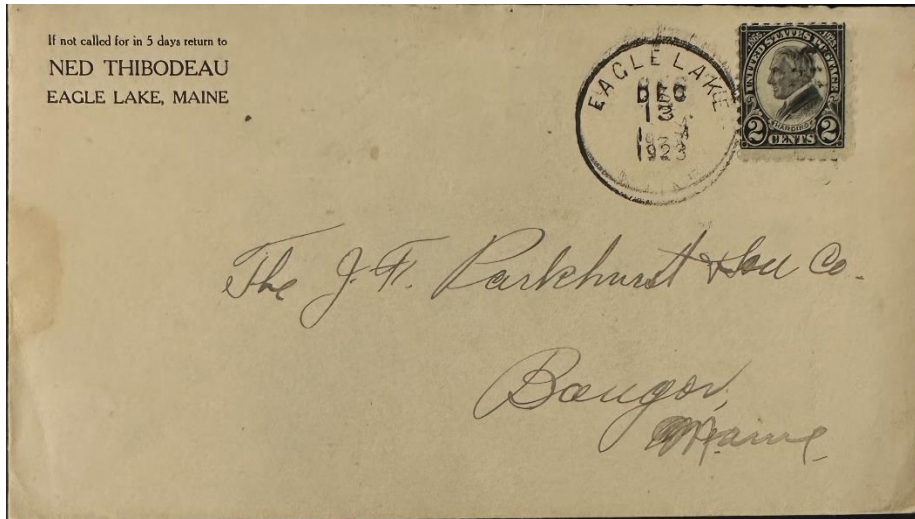 If not called for in 5 days return to
NED THIBODEAU
EAGLE LAKE, MAINE
EAGLE LAKE
DEC
13
1923
MAINE
1865 1923
UNITED STATES POSTAGE
HARDING
2 CENTS 2
The J. F. Parkhurst & Son Co.
Bangor,
Maine